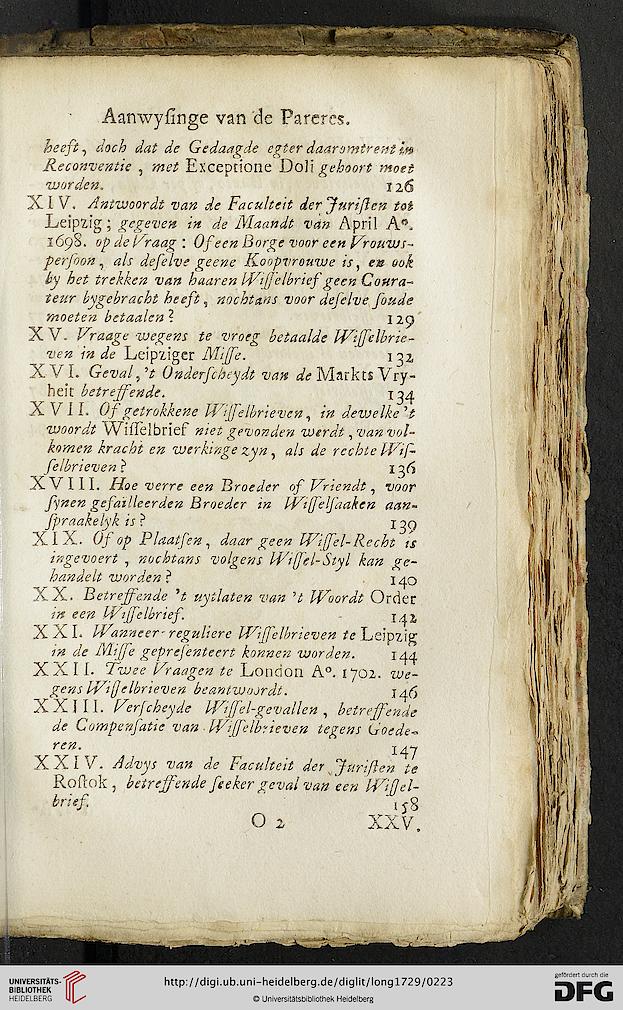 Aanwyſinge van de Pareres.
heeft, doch dat de Gedaagde egter daaromtrent in
Reconventie , met Exceptione Doli gehoort moet
worden. 126
XIV. Antwoordt van de Faculteit der Juriſten tot
Leipzig; gegeven in de Maandt van April A°.
1698. op de Vraag : Of een Borge voor een Vrouws-
perſoon, als deſelve geene Koopvrouwe is, en ook
by het trekken van haaren Wiſſelbrief geen Coura-
teur bygebracht heeft, nochtans voor deſelve ſoude
moeten betaalen? 129
XV. Vraage wegens te vroeg betaalde Wiſſelbrie-
ven in de Leipziger Miſſe. 132
XVI. Geval,'t Onderſcheydt van de Markts Vry-
heit betreffende. 134
XVII. Of getrokkene Wiſſelbrieven, in dewelke 't
woordt Wiſſelbrief niet gevonden werdt, van vol-
komen kracht en werkinge zyn, als de rechte Wiſ-
ſelbrieven? 136
XVIII. Hoe verre een Broeder of Vriendt, voor
ſynen gefailleerden Broeder in Wiſſelſaaken aan-
ſpraakelyk is? 139
XIX. Of op Plaatſen, daar geen Wiſſel-Recht is
ingevoert , nochtans volgens Wiſſel-Styl kan ge-
handelt worden? 140
XX. Betreffende 't uytlaten van 't Woordt Order
in een Wiſſelbrief. 142
XXI. Wanneer reguliere Wiſſelbrieven te Leipzig
in de Miſſe gepreſenteert konnen worden. 144
XXII. Twee Vraagen te London A°. 1702. we-
gens Wiſſelbrieven beantwoordt. 146
XXIII. Verſcheyde Wiſſel-gevallen, betreffende
de Compenſatie van Wiſſelbrieven tegens Goede-
ren. 147
XXIV. Advys van de Faculteit der Juriſten te
Roſtok, betreffende ſeeker geval van een Wiſſel-
brief. 158
O 2 XXV.
UNIVERSITÄTS-
BIBLIOTHEK
HEIDELBERG
http://digi.ub.uni-heidelberg.de/diglit/long1729/0223
© Universitätsbibliothek Heidelberg
gefördert durch die
DFG